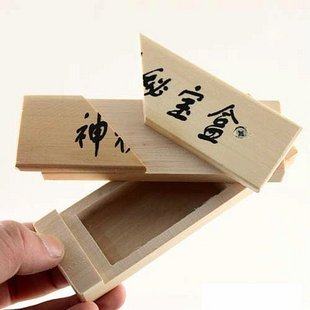 神秘宝盒